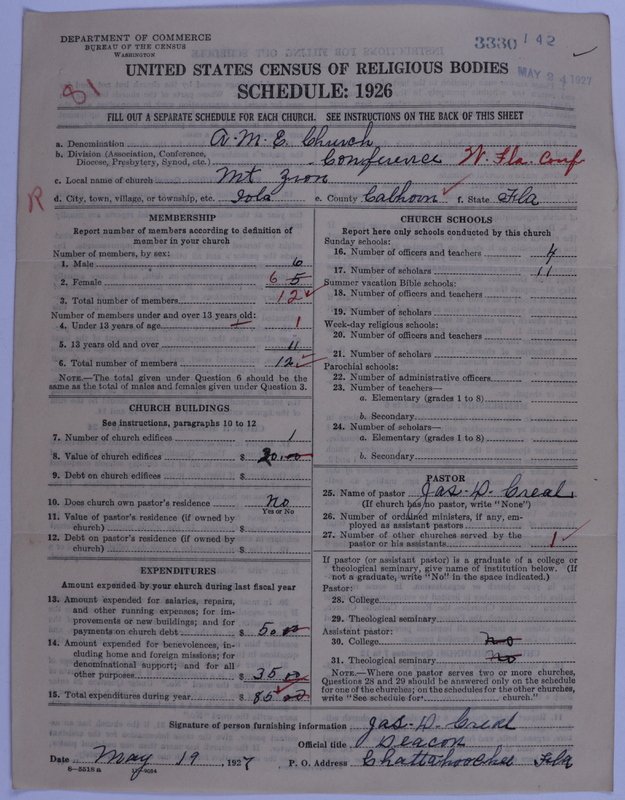 DEPARTMENT OF COMMERCE
BUREAU OF THE CENSUS
WASHINGTON
3330 142
MAY 24 1927
81
UNITED STATES CENSUS OF RELIGIOUS BODIES
SCHEDULE: 1926
FILL OUT A SEPARATE SCHEDULE FOR EACH CHURCH. SEE INSTRUCTIONS ON THE BACK OF THIS SHEET
a. Denomination A. M. E. Church
b. Division (Association, Conference, Diocese, Presbytery, Synod, etc.) Conference W. Fla. Conf
c. Local name of church Mt Zion
R
d. City, town, village, or township, etc. Iola e. County Calhoun f. State Fla
MEMBERSHIP
Report number of members according to definition of
member in your church
Number of members, by sex:
1. Male 6
2. Female 6 5
3. Total number of members 12
Number of members under and over 13 years old:
4. Under 13 years of age 1
5. 13 years old and over 11
6. Total number of members 12
NOTE.—The total given under Question 6 should be the
same as the total of males and females given under Question 3.
CHURCH BUILDINGS
See instructions, paragraphs 10 to 12
7. Number of church edifices 1
8. Value of church edifices $ 20.00
9. Debt on church edifices $
10. Does church own pastor's residence No
Yes or No
11. Value of pastor's residence (if owned by
church) $
12. Debt on pastor's residence (if owned by
church) $
EXPENDITURES
Amount expended by your church during last fiscal year
13. Amount expended for salaries, repairs,
and other running expenses; for im-
provements or new buildings; and for
payments on church debt $ 50 00
14. Amount expended for benevolences, in-
cluding home and foreign missions; for
denominational support; and for all
other purposes $ 35 00
15. Total expenditures during year $ 85 00
CHURCH SCHOOLS
Report here only schools conducted by this church
Sunday schools:
16. Number of officers and teachers 4
17. Number of scholars 11
Summer vacation Bible schools:
18. Number of officers and teachers
19. Number of scholars
Week-day religious schools:
20. Number of officers and teachers
21. Number of scholars
Parochial schools:
22. Number of administrative officers
23. Number of teachers—
a. Elementary (grades 1 to 8)
b. Secondary
24. Number of scholars—
a. Elementary (grades 1 to 8)
b. Secondary
PASTOR
25. Name of pastor Jas. D. Creal
(If church has no pastor, write "None")
26. Number of ordained ministers, if any, em-
ployed as assistant pastors
27. Number of other churches served by the
pastor or his assistants 1
If pastor (or assistant pastor) is a graduate of a college or
theological seminary, give name of institution below. (If
not a graduate, write "No" in the space indicated.)
Pastor:
28. College
29. Theological seminary
Assistant pastor:
30. College No
31. Theological seminary No
NOTE.—Where one pastor serves two or more churches,
Questions 28 and 29 should be answered only on the schedule
for one of the churches; on the schedules for the other churches,
write "See schedule for church."
Signature of person furnishing information Jas. D. Creal
Official title Deacon
Date May 19, 1927 P. O. Address Chattahoochee Fla
8—5518 a